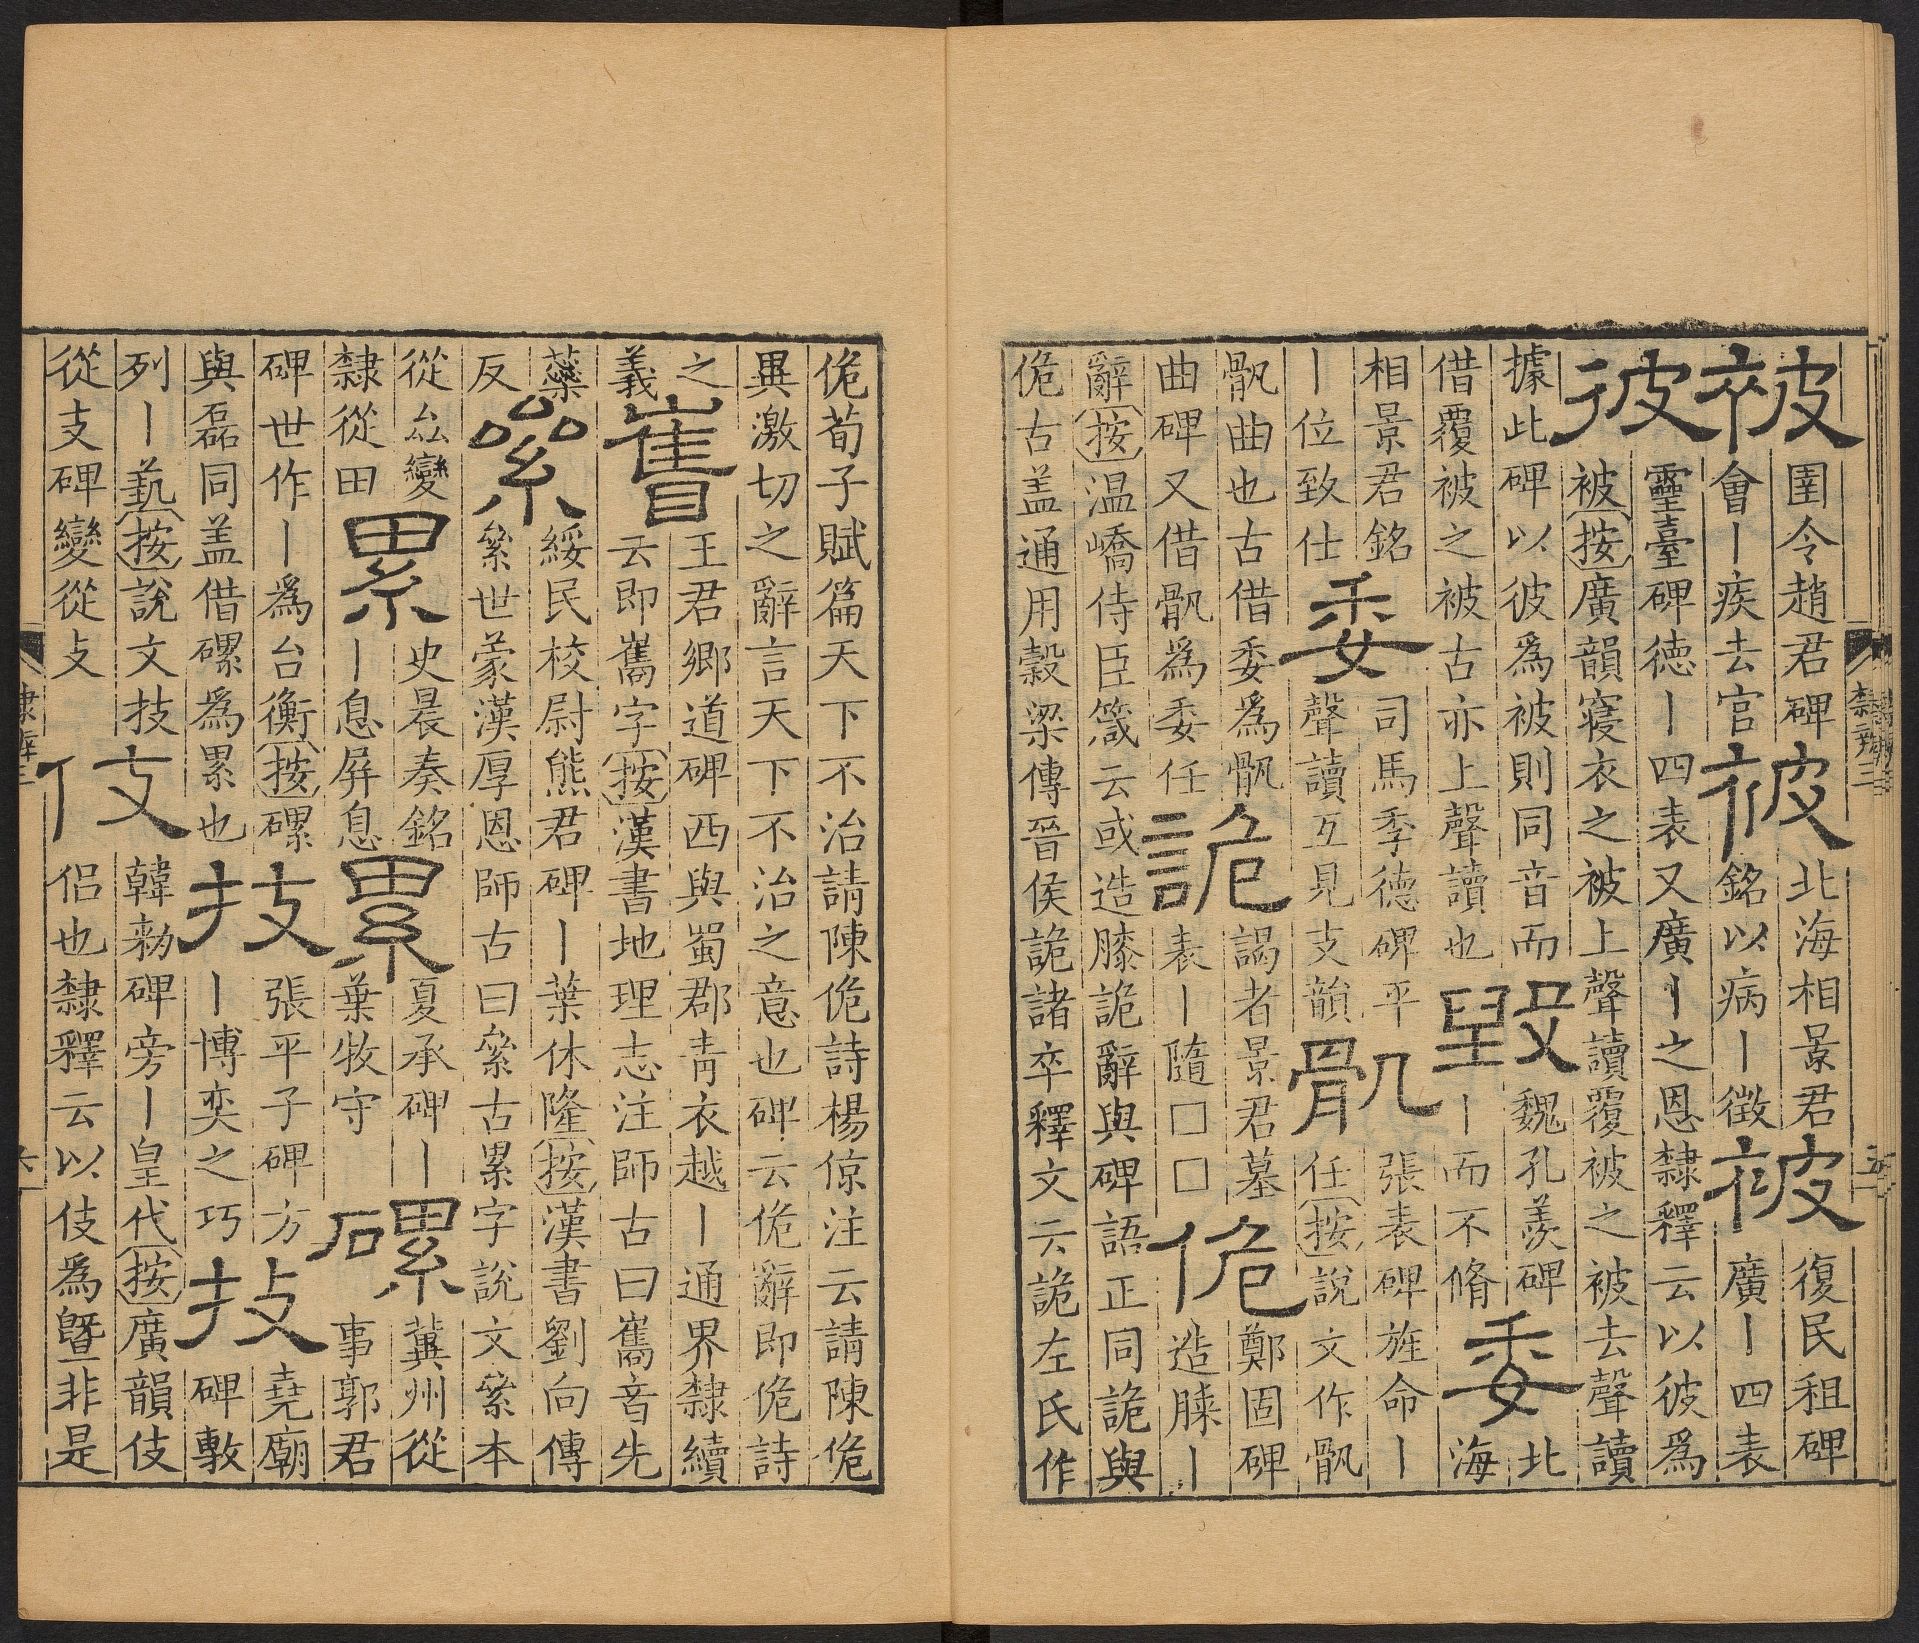 被
圉令趙君碑
會丨疾去官
被
北海相景君
銘以病丨徵
被
復民租碑
廣丨四表
彼
靈臺碑德丨四表又廣丨之恩隸釋云以彼爲
被按廣韻寑衣之被上聲讀覆被之被去聲讀
據此碑以彼爲被則同音而
借覆被之被古亦上聲讀也
毀
魏孔羨碑
丨而不脩
委
北
海
相景君銘
丨位致仕
委
司馬季德碑平
聲讀互見支韻
骫
張表碑旌命丨
任按說文作骫
骫曲也古借委爲骫
曲碑又借骫爲委任
詭
謁者景君墓
表丨隨□□
佹
鄭固碑
造膝丨
辭按温嶠侍臣箴云或造膝詭辭與碑語正同詭與
佹古盖通用穀梁傳晉侯詭諸卒釋文云詭左氏作
隸辨三
五
佹荀子賦篇天下不治請陳佹詩楊倞注云請陳佹
異激切之辭言天下不治之意也碑云佹辭即佹詩
之
義
巂
王君鄉道碑西與蜀郡青衣越丨通界隸續
云即巂字按漢書地理志注師古曰巂音先
蘂
反
絫
綏民校尉熊君碑丨葉休隆按漢書劉向傳
絫世蒙漢厚恩師古曰絫古累字說文絫本
從厽變
隸從田
累
史晨奏銘
丨息屏息
累
夏承碑丨
葉牧守
磥
冀州從
事郭君
碑世作丨爲台衡按磥
與磊同盖借磥爲累也
技
張平子碑方
丨博奕之巧
技
堯廟
碑敷
列丨藝按說文技
從支碑變從攴
伎
韓勑碑旁丨皇代按廣韻伎
侣也隸釋云以伎爲曁非是
隸辨三
六